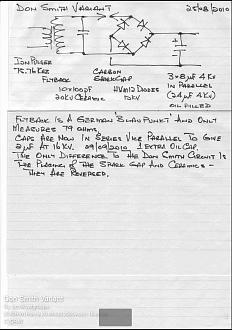 DON SMITH VARIANT 25/08/2010
ION PULSER
75.76KHZ
FLYBACK
CARBON
SPARKGAP
10x100pF
20KV CERAMIC
HVM12 DIODES
12KV
3x8µF 4KV
IN PARALLEL
(24µF 4KV)
OIL FILLED
FLYBACK IS A GERMAN 'BLAUPUNKT' AND ONLY
MEASURES 79 OHMS.
CAPS ARE NOW IN SERIES VICE PARALLEL TO GIVE
2µF AT 16KV. 09/09/2010 1 EXTRA OILCAP.
THE ONLY DIFFERENCE TO THE DON SMITH CIRCUIT IS
THE PLACING OF THE SPARK GAP AND CERAMICS -
THEY ARE REVERSED.
Don Smith Variant